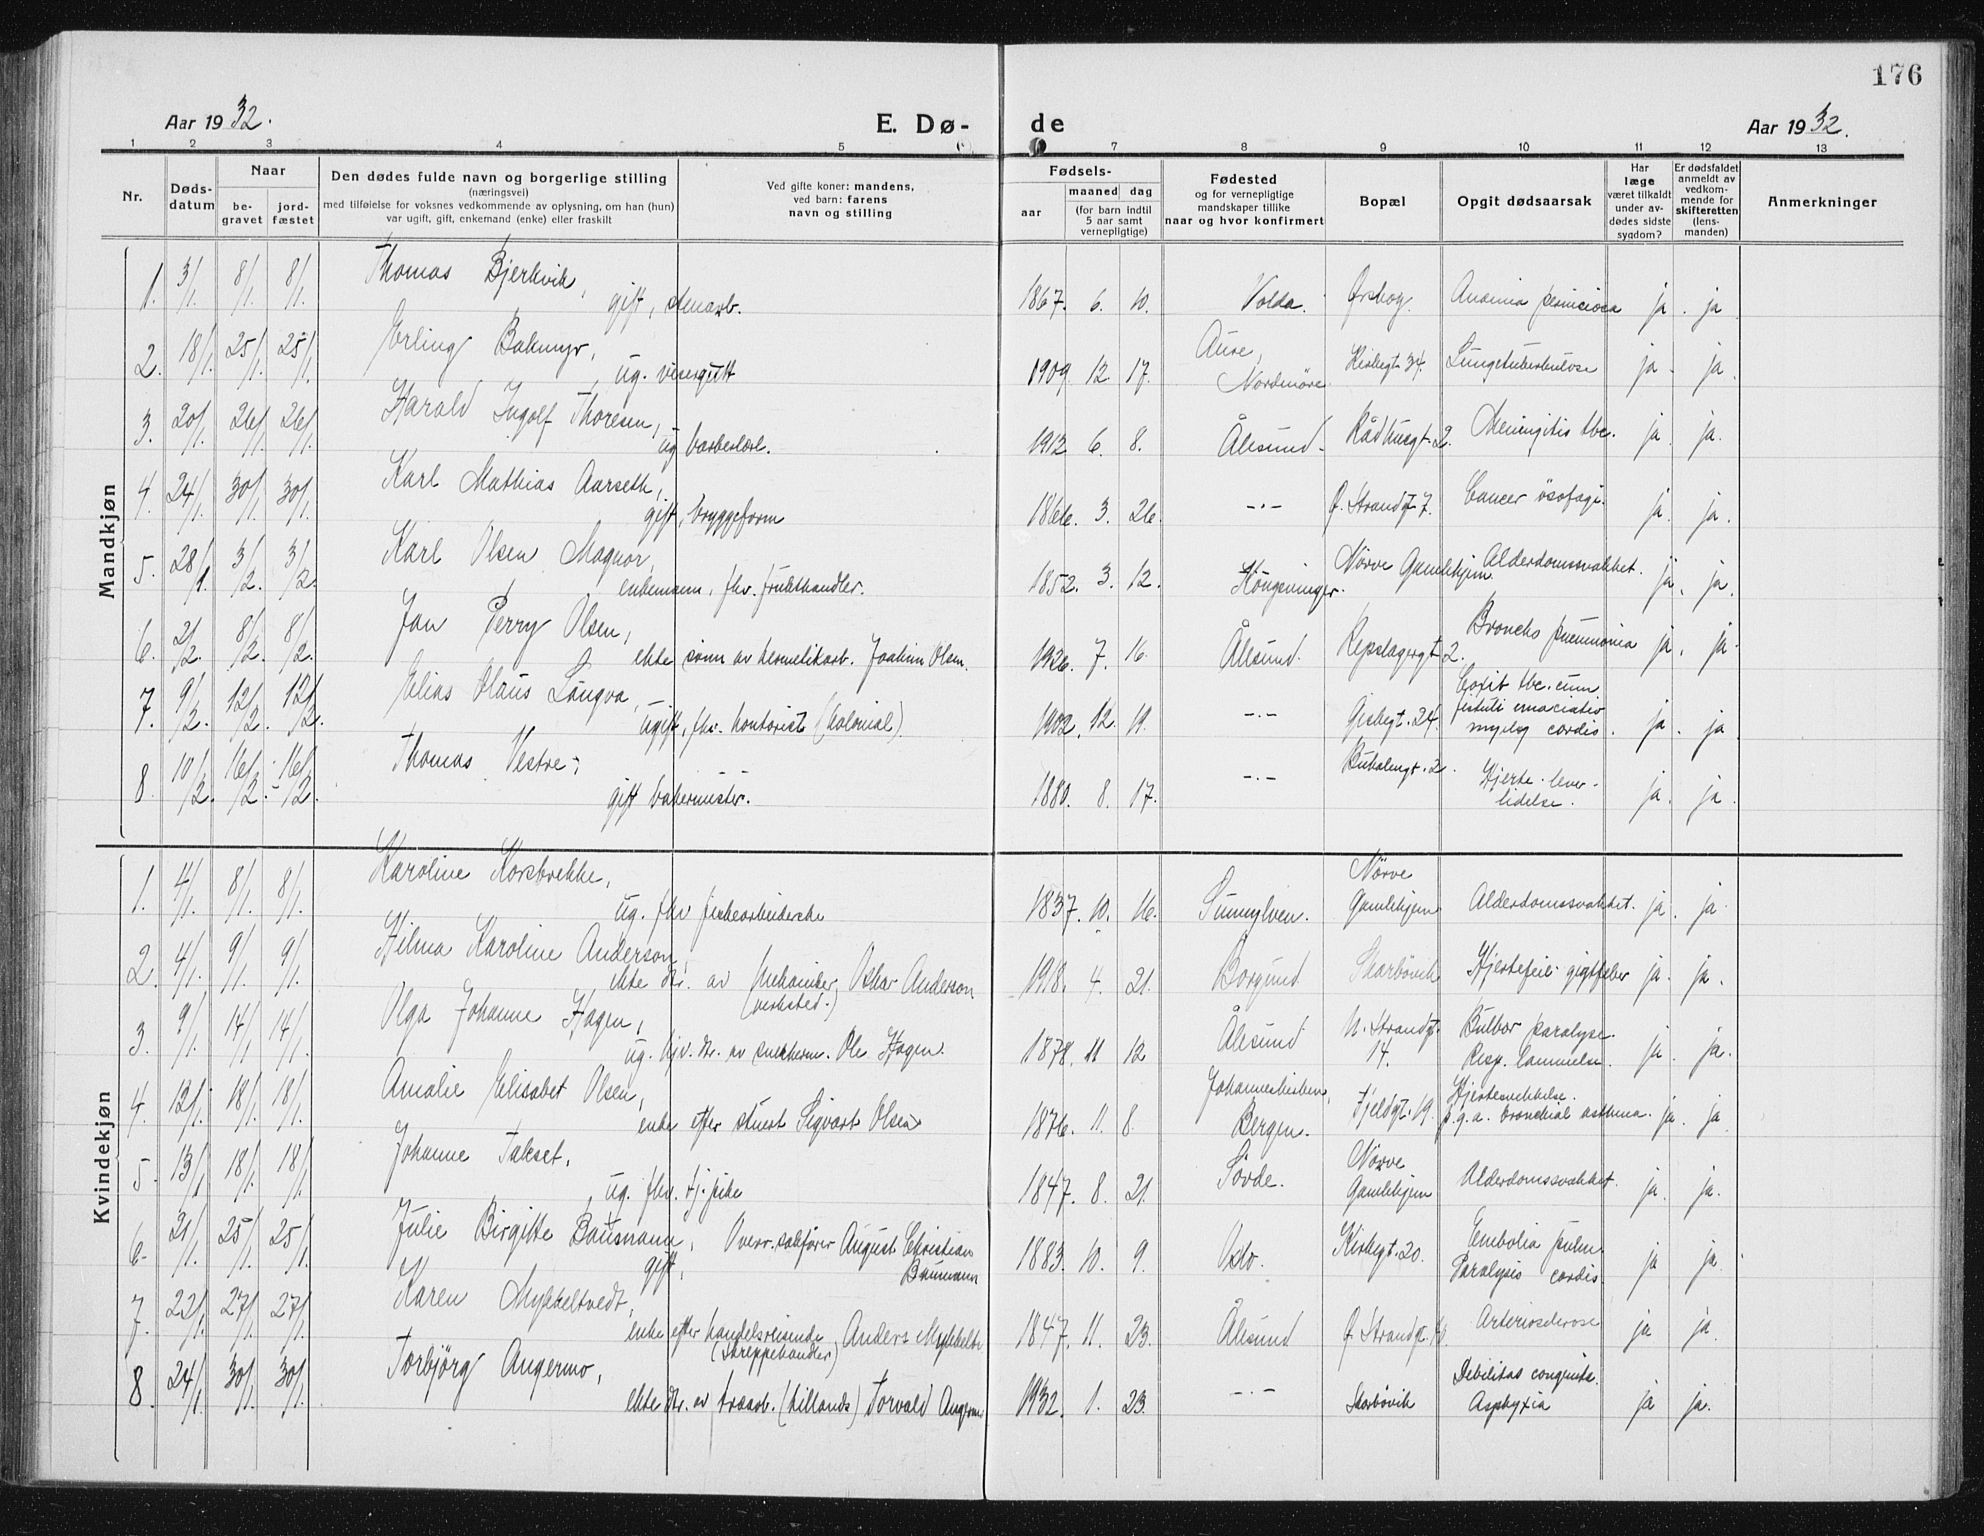 176
Aar 1932.
E. Dø-
de
Aar 1932.
1 2 3 4 5 7 8 9 10 11 12 13
Nr.
Døds-
datum
Naar
be-
gravet
jord-
fæstet
Den dødes fulde navn og borgerlige stilling
(næringsvei)
med tilføielse for voksnes vedkommende av oplysning, om han (hun)
var ugift, gift, enkemand (enke) eller fraskilt
Ved gifte koner: mandens,
ved barn: farens
navn og stilling
Fødsels-
aar
maaned dag
(for barn indtil
5 aar samt
vernepligtige)
Fødested
og for vernepligtige
mandskaper tillike
naar og hvor konfirmert
Bopæl
Opgit dødsaarsak
Har
læge
været tilkaldt
under av-
dødes sidste
sygdom?
Er dødsfaldet
anmeldt av
vedkom-
mende for
skifteretten
(lens-
manden)
Anmerkninger
Mandkjøn
1. 3/1. 8/1. 8/1. Thomas Bjerkvik,
gift, stenarb. 1867. 6. 10. Volda. Ørskog. Anæmia perniciosa ja. ja
2. 18/1. 25/1. 25/1. Erling Bakmyr,
ug. visergutt 1909. 12. 17. Aure, Nordmøre. Kirkegt. 34. Lungetuberkulose ja. ja.
3. 20/1. 26/1. 26/1. Harald Ingolf Thoresen,
ug. barberlærl. 1912 6. 8. Ålesund. Rådhusgt. 2. Meningitis tbc. ja. ja.
4. 24/1. 30/1. 30/1. Karl Mathias Aarseth,
gift, bryggeform 1866. 3. 26. -"- Ø. Strandgt. 7. Cancer øsofagi. ja. ja.
5. 28/1. 3/2. 3/2. Karl Olsen Magnor,
enkemann, fhv. frukthandler. 1852. 3. 12. Kongsvinger. Nørve Gamlehjem Alderdomssvakhet. ja. ja.
6. 2/2. 8/2. 8/2. Jan Perry Olsen,
ekte sønn av hermetikarb. Joakim Olsen. 1926. 7. 16. Ålesund. Repslagergt. 2. Broncho pneumonia ja. ja.
7. 9/2. 12/2. 12/2. Elias Olaus Långva,
ugift, fhv. kontorist (kolonial) 1902. 12. 19. -"- Giskegt. 24. Coxit tbc. cum
fistuli emaciatio
myelog cordis. ja. ja
8. 10/2. 16/2. 16/2. Thomas Vestre,
gift bakermester. 1880. 8. 17. -"- Bukolmgt. 2. Hjerte-lever-
lidelse. ja. ja.
Kvindekjøn
1. 4/1. 8/1. 8/1. Karoline Korsbrekke,
ug. fhv fiskearbeiderske 1837. 10. 16. Sunnylven. Nørve
Gamlehjem Alderdomssvakhet. ja. ja
2. 4/1. 9/1. 9/1. Hilma Karoline Anderson,
ekte dtr. av mekaniker Oskar Anderson
(verksted.) 1918. 4. 21. Borgund Skarbøvik Hjertefeil gigtfeber ja. ja.
3. 9/1. 14/1. 14/1. Olga Johanne Hagen,
ug. hjv. dtr. av snekkerm. Ole Hagen. 1878. 11 12 Ålesund N. Strandgt.
14. Bulbær paralyse.
Resp. lammelse. ja. ja.
4. 12/1. 18/1. 18/1. Amalie Elisabet Olsen,
enke efter stuert Sigvart Olsen 1876. 11. 8. Johanneskirken,
Bergen. Fjeldgt. 19. Hjertesvekkelse.
p.g.a. bronchial asthma. ja. ja.
5. 13/1 18/1. 18/1. Johanne Takset,
ug. fhv. tj. pike 1847. 8. 21. Søvde. Nørve
Gamlehjem Alderdomssvakhet. ja. ja.
6. 21/1. 25/1. 25/1. Julie Birgitte Bausmann,
gift, Overr. sakfører August Christian
Baumann 1883. 10. 9. Oslo. Kirkegt. 20. Embolia pulm.
Paralysis cordis. ja ja.
7. 22/1. 27/1. 27/1. Karen Mykheltvedt,
enke efter handelsreisende Anders Mykheltv.
(Skreppehandler) 1847. 11. 23. Ålesund Ø. Strandgt. Arteriosclerose ja ja.
8. 24/1. 30/1. 30/1. Torbjørg Angermo,
ekte dtr. av traaarb. (lillands) Torvald Angermo 1932. 1. 23. -"- Skarbøvik Debilitas congenita.
Asphyxia ja ja.